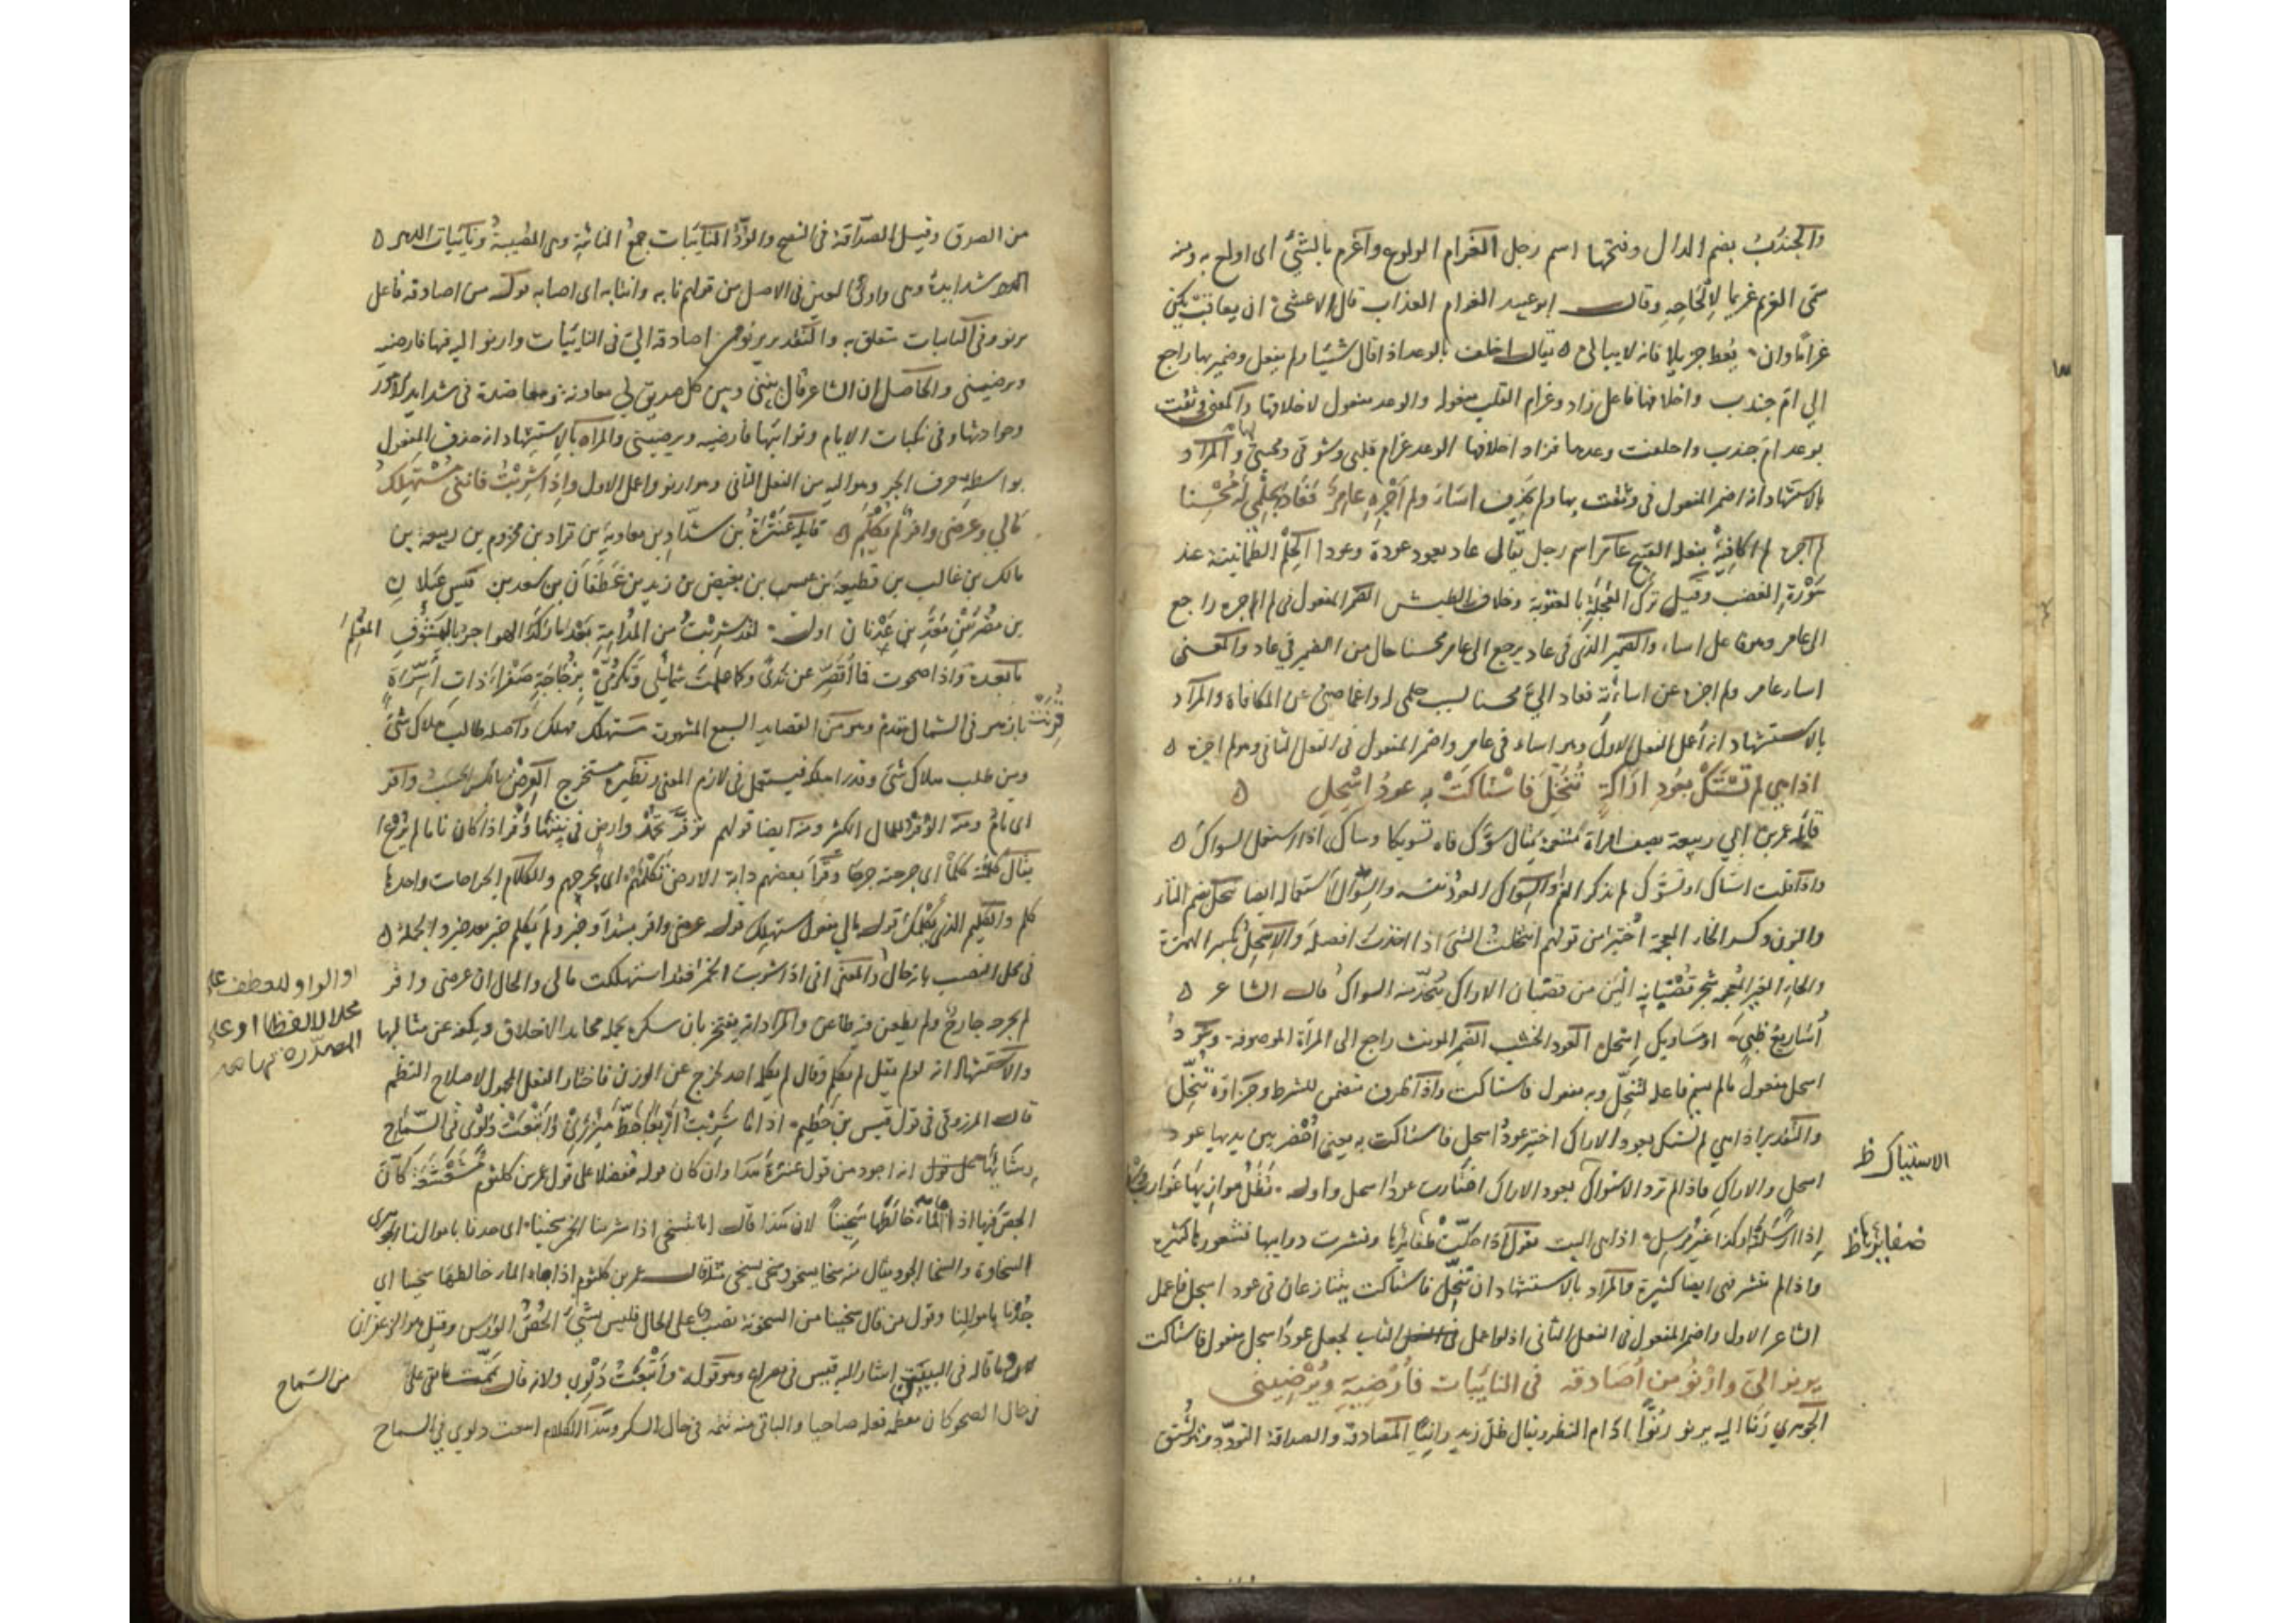 والجندب بضم الدال وفتحها اسم رجل الغرام الولوع واغرم بالشئ اى اولع به ومنه
سمى الغريم غريما لالحاحه وقال ابو عبيد الغرام العذاب قال الاعشى ان يعاقب يكن
غراما وان يعط جزيلا فانه لا يبالى ه يقال اخلف بالوعد اذا قال شيئا ولم يفعل وضمير بها راجع
الى ام جندب واخلافها فاعل زاد وغرام القلب مفعوله والوعد مفعول لاخلافها والمعنى وثقت
بوعد ام جندب واخلفت وعدها فزاد اخلافها الوعد غرام قلبى وشوقى ومحبتى لها والمراد
بالاستشهاد انه اضمر المفعول فى وثقت بها ولم يحذف اساء ولم اجزه عامر فعاد بحلمى له محسنا
لم اجزه لم اكافيه بفعله القبيح عامر اسم رجل يقال عاد يعود عودة وعودا الحلم الطمانينة عند
سورة الغضب وقيل ترك العجلة بالعقوبة وخلاف الطيش الضمير المفعول فى لم اجزه راجع
الى عامر وهو فاعل اساء والضمير الذى فى عاد يرجع الى عامر محسنا حال من الضمير فى عاد والمعنى
اساء عامر ولم اجزه عن اساءته فعاد الى محسنا لسبب حلمى له واغماضى عن المكافاة والمراد
بالاستشهاد انه اعمل الفعل الاول وهو اساء فى عامر واضمر المفعول فى الفعل الثانى وهو لم اجزه ه
اذا هى لم تستك بعود اراكة تنخل فاستاكت به عود اسحل ه
قائله عمر بن ابى ربيعة يصف امراة متنعمة يقال سوك فاه تسويكا وساك اذا استعمل السواك ه
واذا قلت استاك او تسوك لم تذكر الفم والسواك العود نفسه والسواك استعماله ايضا تنخل بضم التاء
والنون وكسر الخاء المعجمة اختير من قولهم انتخلت الشئ اذا اخذت افضله والاسحل بكسر الهمزة
والحاء الغير المعجمة شجر قضبانه الين من قضبان الاراك يتخذ منه السواك قال الشاعر ه
اساريع ظبى او مساويك اسحل العود الخشب الضمير المونث راجع الى المرأة الموصوفة وعود
اسحل مفعول ما لم يسم فاعله لتنخل وبه مفعول فاستاكت واذا ظرف متضمن للشرط وجزاؤه تنخل
والتقدير اذا هى لم تستك بعود الاراك اختير عود اسحل فاستاكت به يعنى احضر بين يديها عود
اسحل والاراك فاذا لم ترد الاستواك بعود الاراك اختارت عود اسحل واوله
الاستياك ظ
اذا ارسلت او كذا غير مرسل اذا هى البيت يقول اذا حكت ظفائرها ونشرت ذوايبها فشعورها كثيرة
ضفايرها ظ
واذا لم تنشر فهى ايضا كثيرة والمراد بالاستشهاد ان تنخل فاستاكت يتنازعان فى عود اسحل فاعمل
الشاعر الاول واضمر المفعول فى الفعل الثانى اذ لو اعمل الثانى لجعل عود اسحل مفعول فاستاكت
يرنو الى وارنو من اصادقه فى النايبات فارضيه ويرضينى
الجوهرى رنا اليه يرنو رنوا اذا دام النظر ويقال ظل زيد رانيا المصادقة والصداقة التودد ومشتق
من الصدق وقيل الصداقة فى النصح والود النايبات جمع النائبة وهى المصيبة ونايبات الدهر ه
شدايده وهى واوى العين فى الاصل من قولهم نابه وانتابه اى اصابه قوله من اصادقه فاعل
يرنو وفى النايبات متعلق به والتقدير يرنو من اصادقه الى فى النايبات وارنو اليه فيها فارضيه
ويرضينى والحاصل ان الشاعر قال بينى وبين كل صديق لى معاونة ومعاضدة فى شدايد الامور
وحوادثها وفى نكبات الايام ونوائبها فارضيه ويرضينى والمراد بالاستشهاد انه حذف المفعول
بواسطة حرف الجر وهو اليه من الفعل الثانى وهو ارنو واعمل الاول واذا شربت فاننى مستهلك
مالى وعرضى وافر لم يكلم ه قايله عنترة بن شداد بن معاوية بن قراد بن مخزوم بن ربيعة بن
مالك بن غالب بن قطيعة بن عبس بن بغيض بن زيد بن غطفان بن سعد بن قيس عيلان
بن مضر بن معد بن عدنان اوله لقد شربت من المدامة بعدما ركد الهواجر بالمشوف المعلم
ما بعده واذا صحوت فما اقصر عن ندى وكما علمت شمايلى وتكرمى بزجاجة صفراء ذات اسرة
قرنت بازهر فى الشمال مقدم وهو من القصايد السبع المشهورة مستهلك مهلك واصله طالب هلاك شئ
ومن طلب هلاك شئ وقدر اهلكه فيستعمل فى لازم المعنى ونظيره مستخرج العرض بالكسر الحسب وافر
اى تام ومنه الوفر للمال الكثير ومنه ايضا قولهم توفر تحمد وارض فى نبتها وفر اذا كان تاما لم يرع
يقال كلمته كلما اى جرحته جرحا وقرأ بعضهم دابة الارض تكلمهم اى تجرحهم والكلام الجراحات واحدها
كلم والكليم الذى يكلمك قوله مالى مفعول مستهلك قوله عرضى وافر مبتدأ وخبر ولم يكلم خبر بعد خبر والجملة ه
فى محل النصب بانه حال والمعنى انى اذا شربت الخمر فقد استهلكت مالى والحال ان عرضى وافر
او الواو للعطف على
محلا لا لفظا او على
المصدرة بها
لم يجرحه جارح ولم يطعن فيه طاعن والمراد انه يفتخر بان سكره يحمله محامد الاخلاق ويكفه عن مثالبها
والاستشهاد انه لو لم يقل لم يكلم وقال لم يكلمه احد لخرج عن الوزن فاختار الفعل المجهول لاصلاح النظم
قال المرزوقى فى قول قيس بن خطيم اذا ما شربت اربعا خط ميزرى واتبعت دلوى فى السماح
رشاءها انه اجود من قول عنترة هذا وان كان قوله مفضلا على قول عمرو بن كلثوم مشعشعة كأن
الحص فيها اذا ما الماء خالطها سخينا لان هذا قال انا نسخى اذا شربنا الخمر سخينا اى جدنا باموالنا الجوهرى
السخاوة والسخا الجود يقال منه سخا يسخو وسخى يسخى مثله قال عمرو بن كلثوم اذا ما الماء خالطها سخينا اى
جدنا باموالنا وقول من قال سخينا من السخونة نصب على الحال فليس بشئ الحص الورس وقيل هو الزعفران
ما قاله فى البيتين اشار اليه قيس فى مصراع وهو قوله واتبعت دلوى ولانه قال تممت ما بقى على
من السماح
فى حال الصحو كان معظم فعله صاحيا والباقى منه تممه فى حال السكر وهذا الكلام اتبعت دلوى فى السماح